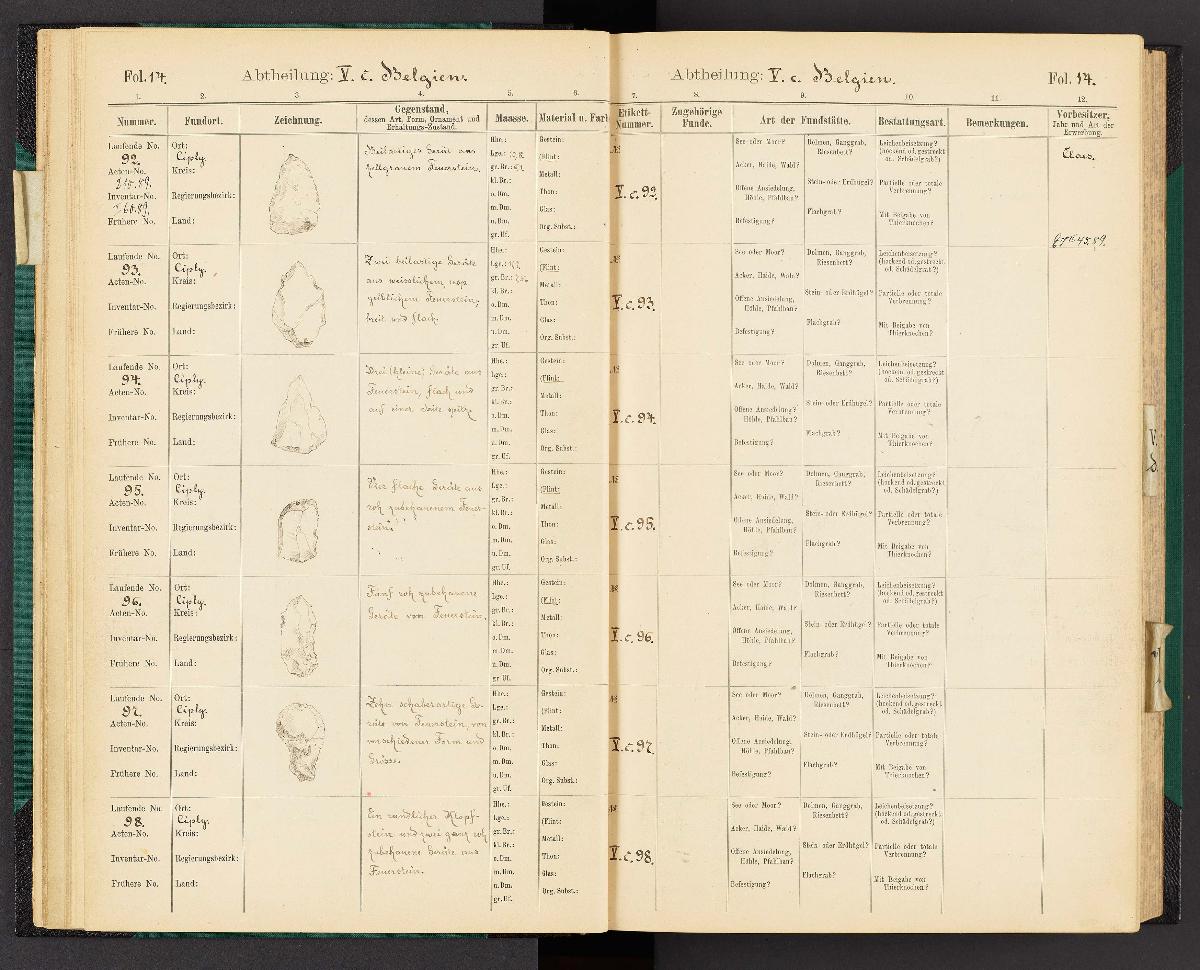 Fol. 14.
Abtheilung: V. c. Belgien.
1. 2. 3. 4. 5. 6.
Nummer. Fundort. Zeichnung. Gegenstand, dessen Art, Form, Ornament und Erhaltungs-Zustand. Maasse. Material u. Farb
Laufende No. 92.
Acten-No.
Inventar-No.
Frühere No.
Ort: Ciply.
Kreis:
Regierungsbezirk:
Land:
hellgrauem Feuerstein.
Hhe.:
Lge.:
gr. Br.:
kl. Br.:
o. Dm.
m. Dm.
u. Dm.
gr. Uf.
Gestein:
(Flint:
Metall:
Thon:
Glas:
Org. Subst.:
Laufende No. 93.
Acten-No.
Inventar-No.
Frühere No.
Ort: Ciply.
Kreis:
Regierungsbezirk:
Land:
Zwei beilartige Geräte
aus weisslichem resp.
gelblichem Feuerstein,
breit und flach.
Hhe.:
Lge.:
gr. Br.:
kl. Br.:
o. Dm.
m. Dm.
u. Dm.
gr. Uf.
Gestein:
(Flint:
Metall:
Thon:
Glas:
Org. Subst.:
Laufende No. 94.
Acten-No.
Inventar-No.
Frühere No.
Ort: Ciply.
Kreis:
Regierungsbezirk:
Land:
Drei (kleine) Geräte aus
Feuerstein, flach und
auf einer Seite spitz.
Hhe.:
Lge.:
gr. Br.:
kl. Br.:
o. Dm.
m. Dm.
u. Dm.
gr. Uf.
Gestein:
(Flint:
Metall:
Thon:
Glas:
Org. Subst.:
Laufende No. 95.
Acten-No.
Inventar-No.
Frühere No.
Ort: Ciply.
Kreis:
Regierungsbezirk:
Land:
Vier flache Geräte aus
roh zubehauenem Feuer-
stein.
Hhe.:
Lge.:
gr. Br.:
kl. Br.:
o. Dm.
m. Dm.
u. Dm.
gr. Uf.
Gestein:
(Flint:
Metall:
Thon:
Glas:
Org. Subst.:
Laufende No. 96.
Acten-No.
Inventar-No.
Frühere No.
Ort: Ciply.
Kreis:
Regierungsbezirk:
Land:
Fünf roh zubehauene
Geräte von Feuerstein.
Hhe.:
Lge.:
gr. Br.:
kl. Br.:
o. Dm.
m. Dm.
u. Dm.
gr. Uf.
Gestein:
(Flint:
Metall:
Thon:
Glas:
Org. Subst.:
Laufende No. 97.
Acten-No.
Inventar-No.
Frühere No.
Ort: Ciply.
Kreis:
Regierungsbezirk:
Land:
Zehn schaberartige Ge-
räte von Feuerstein, von
verschiedener Form und
Grösse.
Hhe.:
Lge.:
gr. Br.:
kl. Br.:
o. Dm.
m. Dm.
u. Dm.
gr. Uf.
Gestein:
(Flint:
Metall:
Thon:
Glas:
Org. Subst.:
Laufende No. 98.
Acten-No.
Inventar-No.
Frühere No.
Ort: Ciply.
Kreis:
Regierungsbezirk:
Land:
Ein rundlicher Klopf-
stein und zwei ganz roh
zubehauene Geräte aus
Feuerstein.
Hhe.:
Lge.:
gr. Br.:
kl. Br.:
o. Dm.
m. Dm.
u. Dm.
gr. Uf.
Gestein:
(Flint:
Metall:
Thon:
Glas:
Org. Subst.:
Abtheilung: V. c. Belgien.
Fol. 14.
7. 8. 9. 10. 11. 12.
Etikett-Nummer. Zugehörige Funde. Art der Fundstätte. Bestattungsart. Bemerkungen. Vorbesitzer, Jahr und Art der Erwerbung.
V. c. 92.
See oder Moor?
Acker, Haide, Wald?
Offene Ansiedelung, Höhle, Pfahlbau?
Befestigung?
Dolmen, Ganggrab, Riesenbett?
Stein- oder Erdhügel?
Flachgrab?
Leichenbeisetzung? (hockend od. gestreckt od. Schädelgrab?)
Partielle oder totale Verbrennung?
Mit Beigabe von Thierknochen?
Claus.
V. c. 93.
See oder Moor?
Acker, Haide, Wald?
Offene Ansiedelung, Höhle, Pfahlbau?
Befestigung?
Dolmen, Ganggrab, Riesenbett?
Stein- oder Erdhügel?
Flachgrab?
Leichenbeisetzung? (hockend od. gestreckt od. Schädelgrab?)
Partielle oder totale Verbrennung?
Mit Beigabe von Thierknochen?
V. c. 94.
See oder Moor?
Acker, Haide, Wald?
Offene Ansiedelung, Höhle, Pfahlbau?
Befestigung?
Dolmen, Ganggrab, Riesenbett?
Stein- oder Erdhügel?
Flachgrab?
Leichenbeisetzung? (hockend od. gestreckt od. Schädelgrab?)
Partielle oder totale Verbrennung?
Mit Beigabe von Thierknochen?
V. c. 95.
See oder Moor?
Acker, Haide, Wald?
Offene Ansiedelung, Höhle, Pfahlbau?
Befestigung?
Dolmen, Ganggrab, Riesenbett?
Stein- oder Erdhügel?
Flachgrab?
Leichenbeisetzung? (hockend od. gestreckt od. Schädelgrab?)
Partielle oder totale Verbrennung?
Mit Beigabe von Thierknochen?
V. c. 96.
See oder Moor?
Acker, Haide, Wald?
Offene Ansiedelung, Höhle, Pfahlbau?
Befestigung?
Dolmen, Ganggrab, Riesenbett?
Stein- oder Erdhügel?
Flachgrab?
Leichenbeisetzung? (hockend od. gestreckt od. Schädelgrab?)
Partielle oder totale Verbrennung?
Mit Beigabe von Thierknochen?
V. c. 97.
See oder Moor?
Acker, Haide, Wald?
Offene Ansiedelung, Höhle, Pfahlbau?
Befestigung?
Dolmen, Ganggrab, Riesenbett?
Stein- oder Erdhügel?
Flachgrab?
Leichenbeisetzung? (hockend od. gestreckt od. Schädelgrab?)
Partielle oder totale Verbrennung?
Mit Beigabe von Thierknochen?
V. c. 98.
See oder Moor?
Acker, Haide, Wald?
Offene Ansiedelung, Höhle, Pfahlbau?
Befestigung?
Dolmen, Ganggrab, Riesenbett?
Stein- oder Erdhügel?
Flachgrab?
Leichenbeisetzung? (hockend od. gestreckt od. Schädelgrab?)
Partielle oder totale Verbrennung?
Mit Beigabe von Thierknochen?